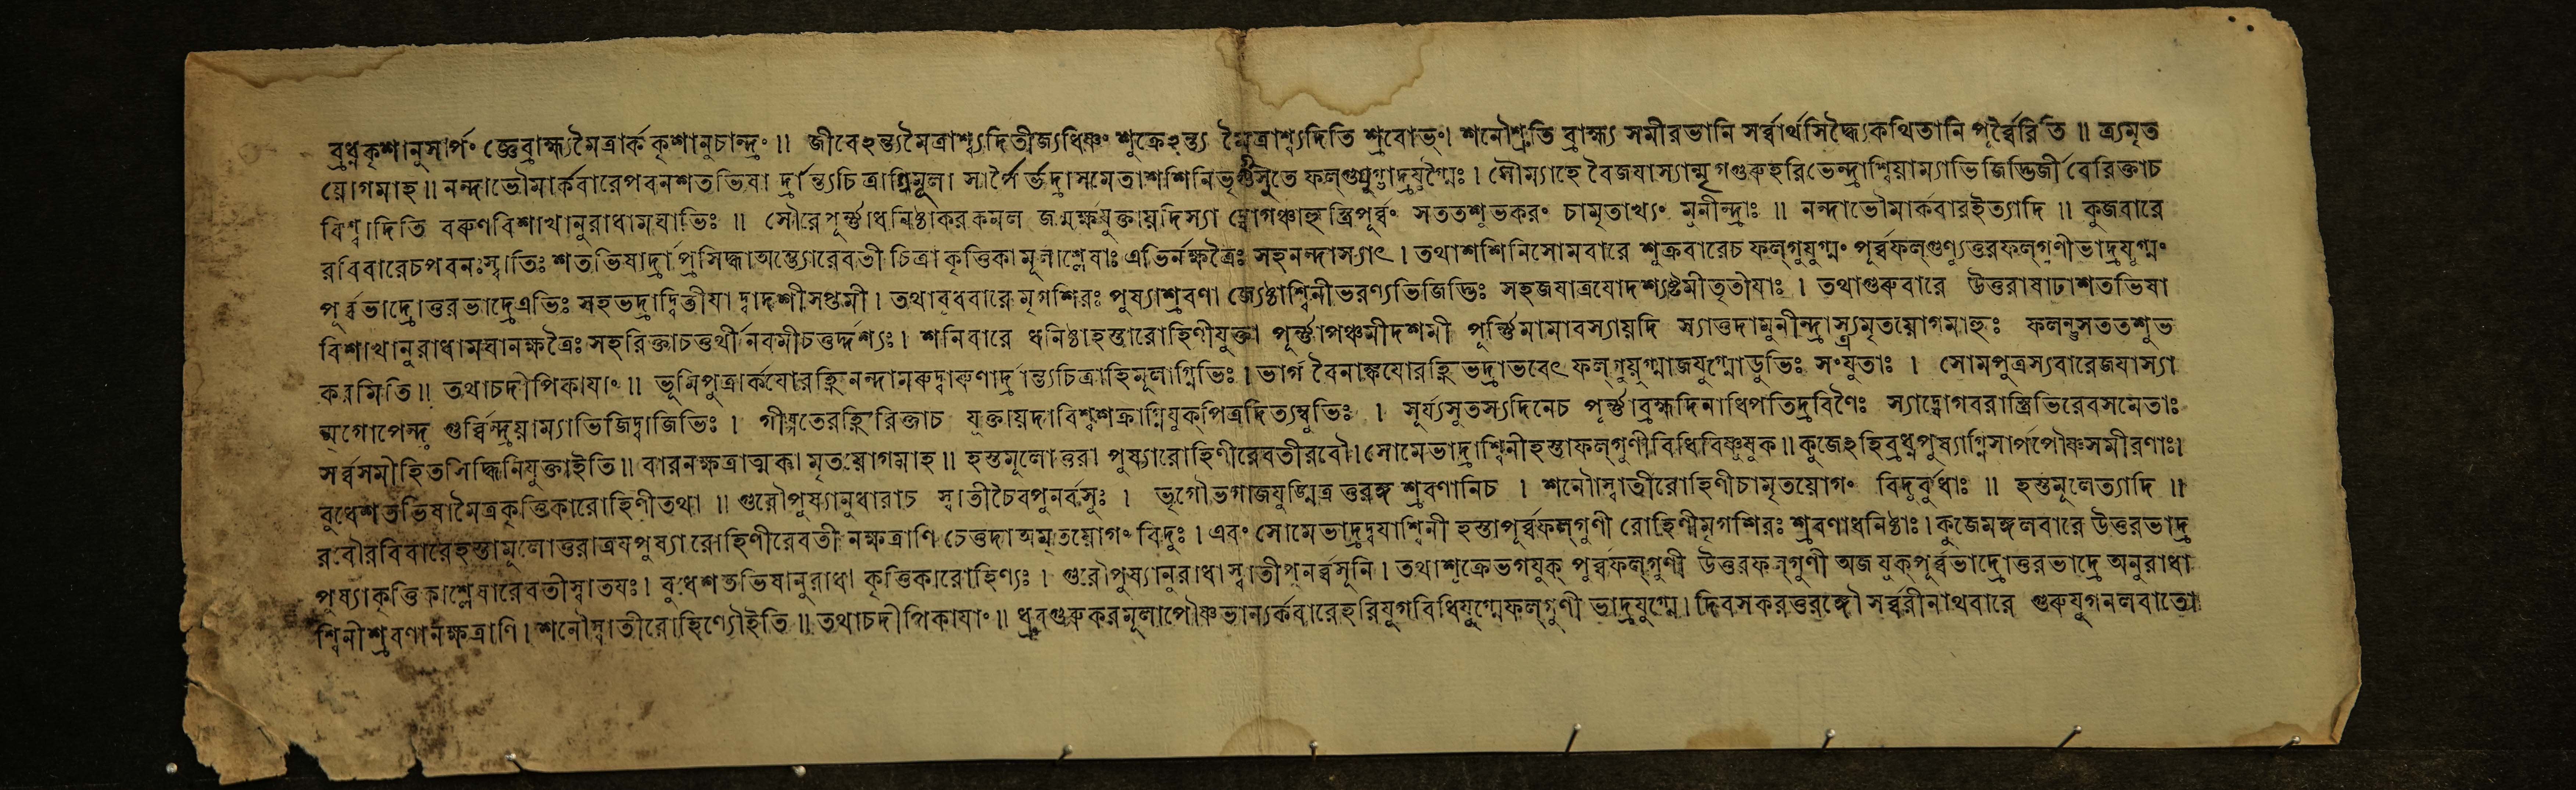 ব্রধ্নকৃশানুসার্পং জ্ঞেব্রাহ্ম্যমৈত্রার্ককৃশানুচান্দ্রং ॥ জীবেঽন্ত্যমৈত্রাশ্ব্যদিতীজ্যধিষ্ণং শুক্রেঽন্ত্য মৈত্রাশ্ব্যদিতি শ্রবোভং। শনৌশ্রুতি ব্রাহ্ম্য সমীরভানি সর্ব্বার্থসিদ্ধ্যৈকথিতানি পূর্ব্বৈরিতি ॥ ত্র্যমৃত
যোগমাহ ॥ নন্দাভৌমার্কবারেপবনশতভিষা র্দ্রান্ত্যচিত্রাগ্নিমূলা সার্পৈ র্ভদ্রাসমেতাশশিনিভৃগুসুতে ফল্গুযুগ্মাদ্রযুগ্মৈঃ । সৌম্যাহে বৈজযাস্যান্মৃগগুরুহরিভেন্দ্রাশ্বিযাম্যাভিজিদ্ভির্জীবেরিক্তাচ
বিশ্বাদিতি বরুণবিশাখানুরাধামঘাভিঃ ॥ সৌরেপূর্ন্নাধনিষ্ঠাকরকমল জমৃক্ষযুক্তাযদিস্যা দ্যোগঞ্চাহুস্ত্রিপূর্ব্বং সততশুভকরং চামৃতাখ্যং মুনীন্দ্রাঃ ॥ নন্দাভৌমার্কবারইত্যাদি ॥ কুজবারে
রবিবারেচপবনঃস্বাতিঃ শতভিষার্দ্রা প্রসিদ্ধাঅন্ত্যোরেবতী চিত্রা কৃত্তিকা মূলাশ্লেষাঃ এভির্নক্ষত্রৈঃ সহনন্দাস্যাৎ । তথাশশিনিসোমবারে শুক্রবারেচ ফল্গুযুগ্মং পূর্ব্বফল্গুণ্যুত্তরফল্গুণীভাদ্রযুগ্মং
পূর্ব্বভাদ্রোত্তরভাদ্রেএভিঃ সহভদ্রাদ্বিতীযা দ্বাদশীসপ্তমী । তথাবুধবারে মৃগশিরঃ পুষ্যাশ্রবণা জ্যেষ্ঠাশ্বিনীভরণ্যভিজিদ্ভিঃ সহজযাত্রযোদশ্যষ্টমীতৃতীযাঃ । তথাগুরুবারে উত্তরাষাঢাশতভিষা
বিশাখানুরাধামঘানক্ষত্রৈঃ সহরিক্তাচতুর্থীনবমীচতুর্দ্দশ্যঃ। শনিবারে ধনিষ্ঠাহস্তারোহিণীযুক্তা পূর্ন্নাপঞ্চমীদশমী পূর্ন্নিমামাবস্যাযদি স্যাত্তদামুনীন্দ্রাস্ত্র্যমৃতযোগমাহুঃ ফলন্তুসততশুভ
করমিতি ॥ তথাচদীপিকাযাং ॥ ভূমিপুত্রার্কযোরহ্নিনন্দামরুদ্বারুণার্দ্রান্ত্যচিত্রাহিমূলাগ্নিভিঃ । ভার্গবৈনাঙ্কযোরহ্নি ভদ্রাভবেৎফল্গুযুগ্মাজযুগ্মোডুভিঃ সংযুতাঃ । সোমপুত্রস্যবারেজযাস্যা
ন্মৃগোপেন্দ্র গুর্ব্বিন্দ্রযাম্যাভিজিদ্বাজিভিঃ । গীষ্পতেরহ্নিরিক্তাচ যুক্তাযদাবিশ্বশক্রাগ্নিযুক্পিত্রদিত্যম্বুভিঃ । সূর্য্যসুতস্যদিনেচ পূর্ন্নাব্রহ্মদিনাধিপতিদ্রবিণৈঃ স্যাদ্যোগবরাস্ত্রিভিরেবসমেতাঃ
সর্ব্বসমীহিতসিদ্ধিনিযুক্তাইতি ॥ বারনক্ষত্রাত্মকামৃতযোগমাহ ॥ হস্তমূলোত্তরা পুষ্যারোহিণীরেবতীরবৌ। সোমেভাদ্রাশ্বিনীহস্তাফল্গুণীবিধিবিষ্ণুযুক্ ॥ কুজেঽহিব্রধ্নপুষ্যাগ্নিসার্পপৌষ্ণসমীরণাঃ।
বুধেশতভিষামৈত্রকৃত্তিকারোহিণীতথা ॥ গুরৌপুষ্যানুধারাচ স্বাতীচৈবপুনর্বসুঃ । ভৃগৌভগাজযুঙ্মিত্র তুরঙ্গ শ্রবণানিচ । শনৌাস্বাতীরোহিণীচামৃতযোগং বিদুর্বুধাঃ ॥ হস্তমূলেত্যাদি ॥
রবৌরবিবারেহস্তামূলোত্তরাত্রযপুষ্যা রোহিণীরেবতী নক্ষত্রাণি চেত্তদা অমৃতযোগং বিদুঃ । এবং সোমেভাদ্রদ্বযাশ্বিনী হস্তাপূর্ব্বফল্গুণী রোহিণীমৃগশিরঃ শ্রবণাধনিষ্ঠাঃ। কুজেমঙ্গলবারে উত্তরভাদ্র
পুষ্যাকৃত্তিকাশ্লেষারেবতীস্বাতযঃ। বুধেশতভিষানুরাধা কৃত্তিকারোহিণ্যঃ । গুরৌপুষ্যানুরাধাস্বাতীপুনর্ব্বসূনি । তথাশুক্রেভগযুক্ পূর্ব্বফল্গুণী উত্তরফল্গুণী অজযুক্পূর্ব্বভাদ্রোত্তরভাদ্রে অনুরাধা
শ্বিনীশ্রবণানক্ষত্রাণি। শনৌস্বাতীরোহিণ্যৌইতি ॥ তথাচদীপিকাযাং ॥ ধ্রুবগুরুকরমূলাপৌষ্ণভান্যর্কবারেহরিযুগবিধিযুগ্মেফল্গুণী ভাদ্রযুগ্মে। দিবসকরতুরঙ্গৌ সর্ব্বরীনাথবারে গুরুযুগনলবাতো